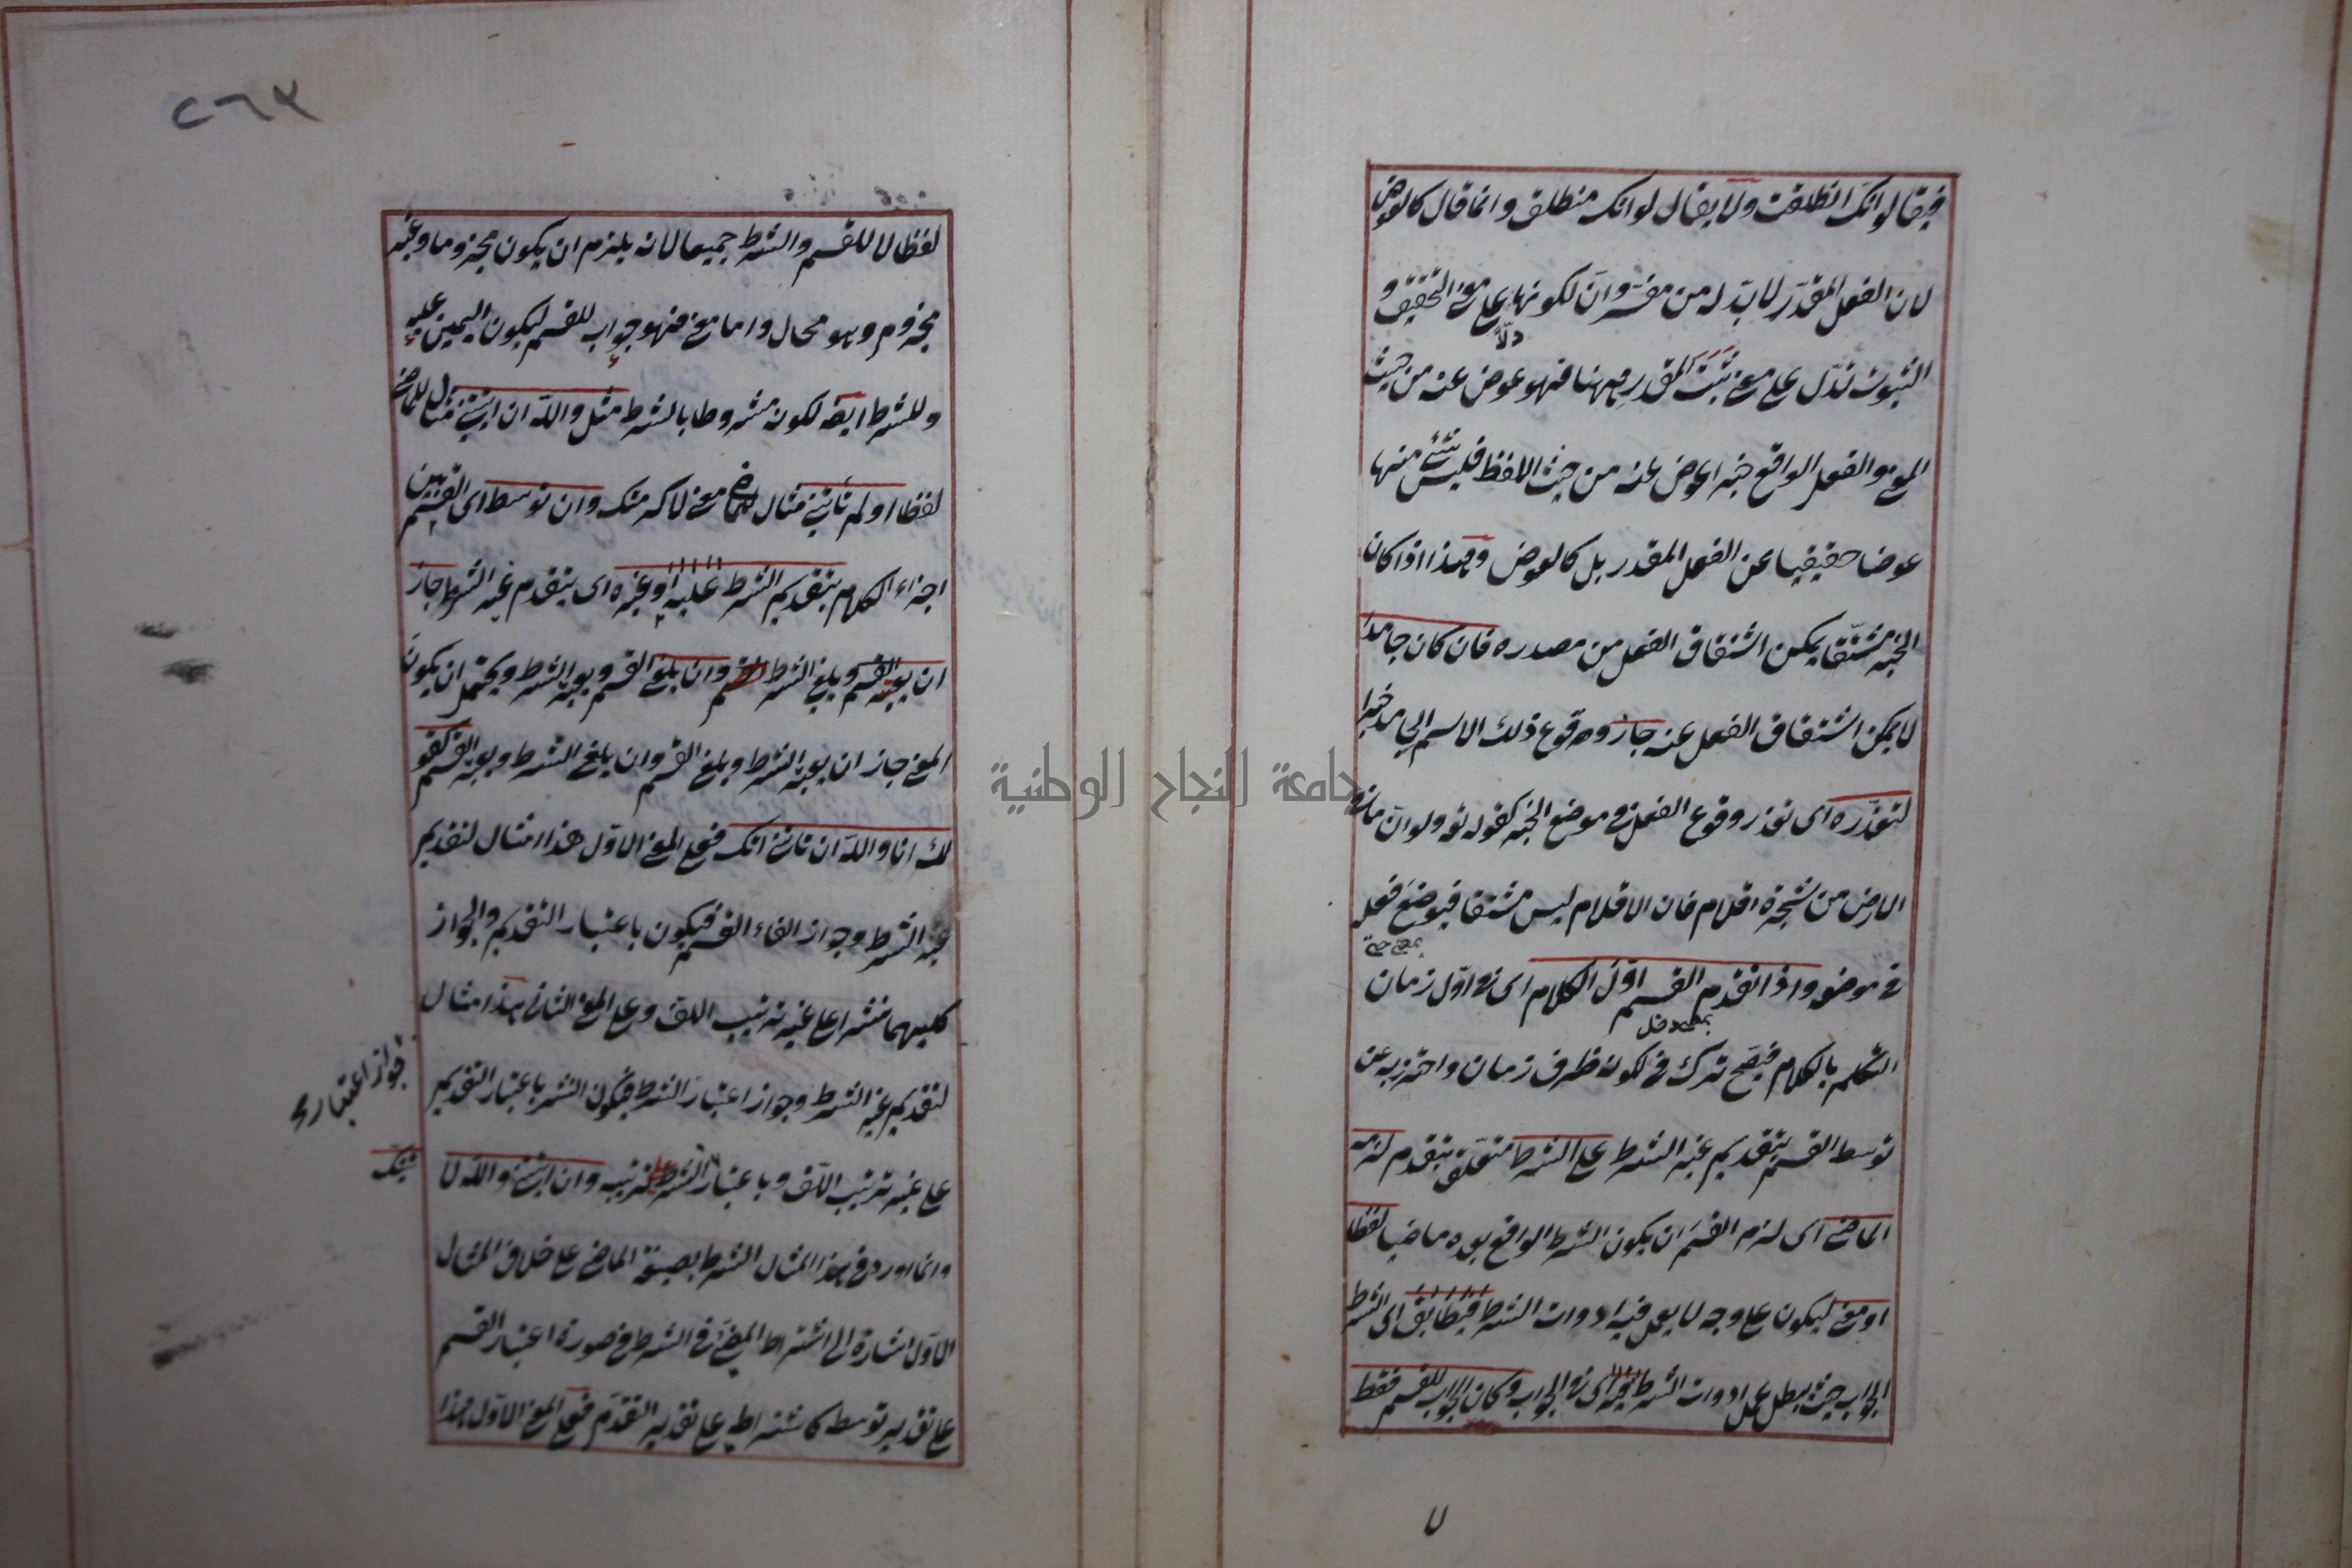 فيقال لو انك انطلقت ولا يقال لو انك منطلق وانما قال كالعوض
لان الفعل المقدر لا بدّ له من مفسر وانّ لكونها دالّا على معنى التحقيق و
الثبوت تدلّ على معنى ثبت المقدر ههنا فهو عوض عنه من حيث
المعنى والفعل الواقع خبرا عوض عنه من حيث اللفظ فليس شئ منها
عوضا حقيقيا عن الفعل المقدر بل كالعوض وهذا اذا كان
الخبر مشتقا يمكن اشتقاق الفعل من مصدره فان كان جامدا
لا يمكن اشتقاق الفعل عنه جاز وقوع ذلك الاسم الجامد خبرا
لتعذّره اى تعذر وقوع الفعل فى موضع الخبر كقوله تعـ ولو انّ ما فى
الارض من شجرة اقلام فان الاقلام ليس مشتقا فيوضع فعله
فى موضعه واذا تقدم القسم اوّل الكلام اى فى اوّل زمان
التكلم بالكلام فيصح ترك فى لكونه ظرف زمان واحترز به عن
توسط القسم بتقديم غير الشرط على الشرط متعلق بتقدم لزمه
الماضى اى لزم القسم ان يكون الشرط الواقع بعده ماضيا لفظا
او معنى ليكون على وجه لا يعمل فيه ادوات الشرط فيطابق اى الشرط
الجواب حيث يبطل عمل ادوات الشرط فيه اى فى الجواب وكان الجواب للقسم فقط
٧
٢٦٢
لفظا لا للقسم والشرط جميعا لانه يلزم ان يكون مجزوما وغير
مجزوم وهو محال واما معنى فهو جواب للقسم ليكون اليمين عليه
وللشرط ايضـ لكونه مشروطا بالشرط مثل والله ان اتيتنى مثال للماضى
لفظا او لم تأتنى مثال للماضى معنى لاكرمتك وان توسط اى القسم بين
اجزاء الكلام بتقديم الشرط عليه او غيره اى بتقدم غير الشرط جاز
ان يعتبر القسم ويلغى الشرط وان يلغى القسم ويعتبر الشرط ويحتمل ان يكون
المعنى جاز ان يعتبر الشرط ويلغى القسم وان يلغى الشرط ويعتبر القسم كقو
لك انا والله ان تاتنى آتك فعلى المعنى الاوّل هذا مثال لتقديم
غير الشرط وجواز الغاء القسم فيكون باعتبار التقديم والجواز
كليهما نشرا على غير ترتيب اللف وعلى المعنى الثانى هذا مثال
لتقديم غير الشرط وجواز اعتبار الشرط فيكون النشر باعتبار التقديم
جواز اعتباره
على غير ترتيب اللّف وباعتبار الشرط على ترتيبه وان اتيتنى والله لا
تينك
وانما اورد فى هذا المثال الشرط بصيغة الماضى على خلاف المثال
الاوّل اشارة الى اشتراط المضىّ فى الشرط فى صورة اعتبار القسم
على تقدير توسطه كاشتراطه على تقدير التقدّم فعلى المعنى الاوّل هذا
جامعة النجاح الوطنية